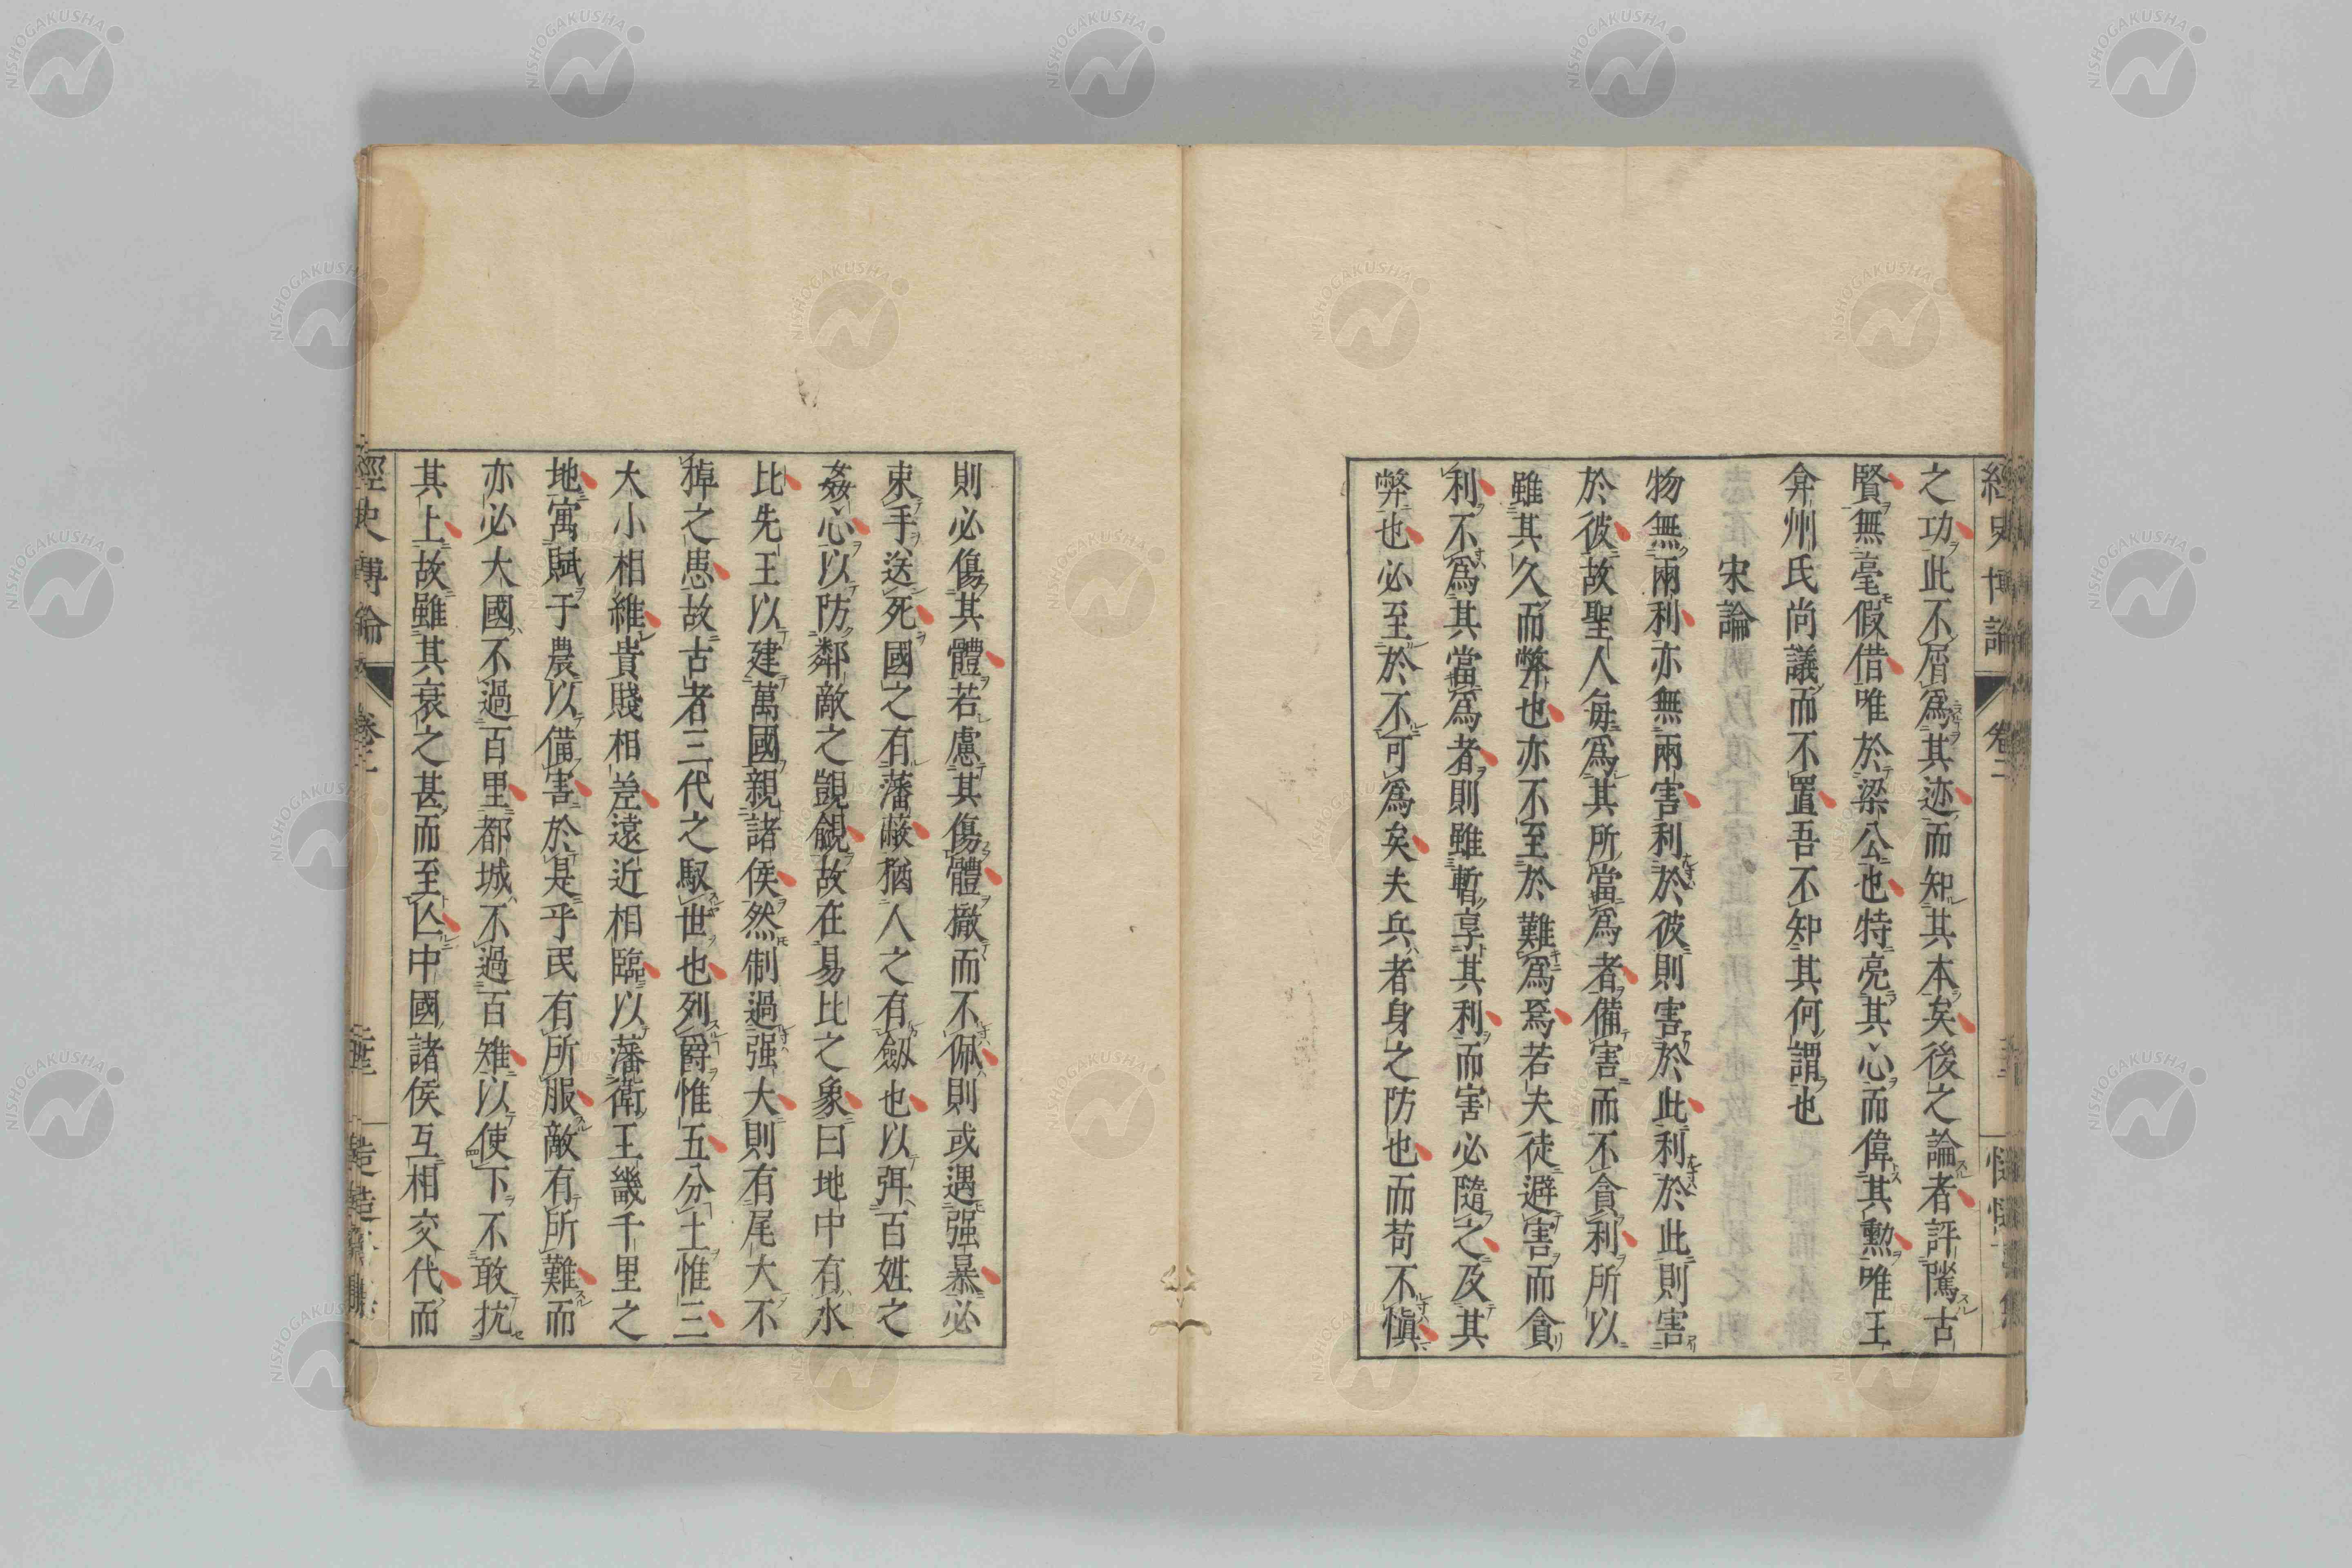 經史博論 卷二
之功此不屑爲其迹而知其本矣後之論者評隲古
賢無毫假借唯於梁公也特亮其心而偉其勳唯王
弇州氏尚議而不置吾不知其何謂也
宋論
物無兩利亦無兩害利於彼則害於此利於此則害
於彼故聖人每爲其所當爲者備害而不貪利所以
雖其久而弊也亦不至於難爲焉若夫徒避害而貪
利不爲其當爲者則雖暫享其利而害必隨之及其
弊也必至於不可爲矣夫兵者身之防也而苟不愼
則必傷其體若慮其傷體撤而不佩則或遇强暴必
束手送死國之有藩蔽猶人之有劔也以弭百姓之
姦心以防鄰敵之覬覦故在易比之象曰地中有水
比先王以建萬國親諸侯然制過强大則有尾大不
掉之患故古者三代之馭世也列爵惟五分土惟三
大小相維貴賤相差遠近相臨以藩衛王畿千里之
地寓賦于農以備害於是乎民有所服敵有所難而
亦必大國不過百里都城不過百雉以使下不敢抗
其上故雖其衰之甚而至亾中國諸侯互相交代而
經史博論 卷二